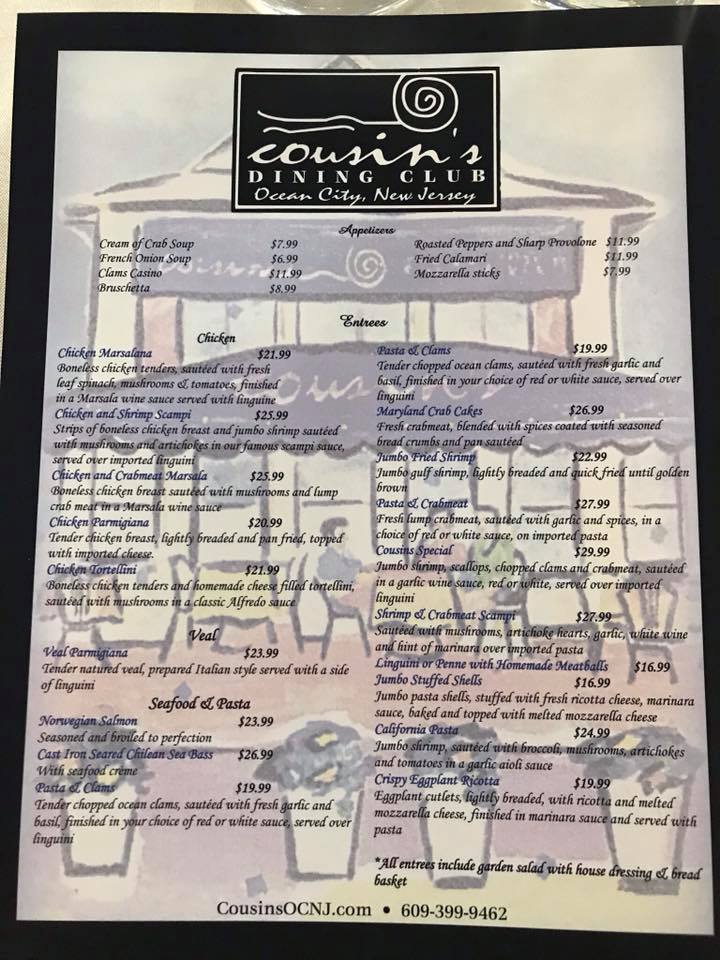 cousin's
DINING CLUB
Ocean City, New Jersey
Appetizers
Cream of Crab Soup $7.99
French Onion Soup $6.99
Clams Casino $11.99
Bruschetta $8.99
Roasted Peppers and Sharp Provolone $11.99
Fried Calamari $11.99
Mozzarella sticks $7.99
Entrees
Chicken
Chicken Marsalana $21.99
Boneless chicken tenders, sautéed with fresh
leaf spinach, mushrooms & tomatoes, finished
in a Marsala wine sauce served with linguine
Chicken and Shrimp Scampi $25.99
Strips of boneless chicken breast and jumbo shrimp sautéed
with mushrooms and artichokes in our famous scampi sauce,
served over imported linguini
Chicken and Crabmeat Marsala $25.99
Boneless chicken breast sautéed with mushrooms and lump
crab meat in a Marsala wine sauce
Chicken Parmigiana $20.99
Tender chicken breast, lightly breaded and pan fried, topped
with imported cheese.
Chicken Tortellini $21.99
Boneless chicken tenders and homemade cheese filled tortellini,
sautéed with mushrooms in a classic Alfredo sauce
Veal
Veal Parmigiana $23.99
Tender natured veal, prepared Italian style served with a side
of linguini
Seafood & Pasta
Norwegian Salmon $23.99
Seasoned and broiled to perfection
Cast Iron Seared Chilean Sea Bass $26.99
With seafood creme
Pasta & Clams $19.99
Tender chopped ocean clams, sautéed with fresh garlic and
basil, finished in your choice of red or white sauce, served over
linguini
Pasta & Clams $19.99
Tender chopped ocean clams, sautéed with fresh garlic and
basil, finished in your choice of red or white sauce, served over
linguini
Maryland Crab Cakes $26.99
Fresh crabmeat, blended with spices coated with seasoned
bread crumbs and pan sautéed
Jumbo Fried Shrimp $22.99
Jumbo gulf shrimp, lightly breaded and quick fried until golden
brown
Pasta & Crabmeat $27.99
Fresh lump crabmeat, sautéed with garlic and spices, in a
choice of red or white sauce, on imported pasta
Cousins Special $29.99
Jumbo shrimp, scallops, chopped clams and crabmeat, sautéed
in a garlic wine sauce, red or white, served over imported
linguini
Shrimp & Crabmeat Scampi $27.99
Sautéed with mushrooms, artichoke hearts, garlic, white wine
and hint of marinara over imported pasta
Linguini or Penne with Homemade Meatballs $16.99
Jumbo Stuffed Shells $16.99
Jumbo pasta shells, stuffed with fresh ricotta cheese, marinara
sauce, baked and topped with melted mozzarella cheese
California Pasta $24.99
Jumbo shrimp, sautéed with broccoli, mushrooms, artichokes
and tomatoes in a garlic aioli sauce
Crispy Eggplant Ricotta $19.99
Eggplant cutlets, lightly breaded, with ricotta and melted
mozzarella cheese, finished in marinara sauce and served with
pasta
*All entrees include garden salad with house dressing & bread
basket
CousinsOCNJ.com • 609-399-9462